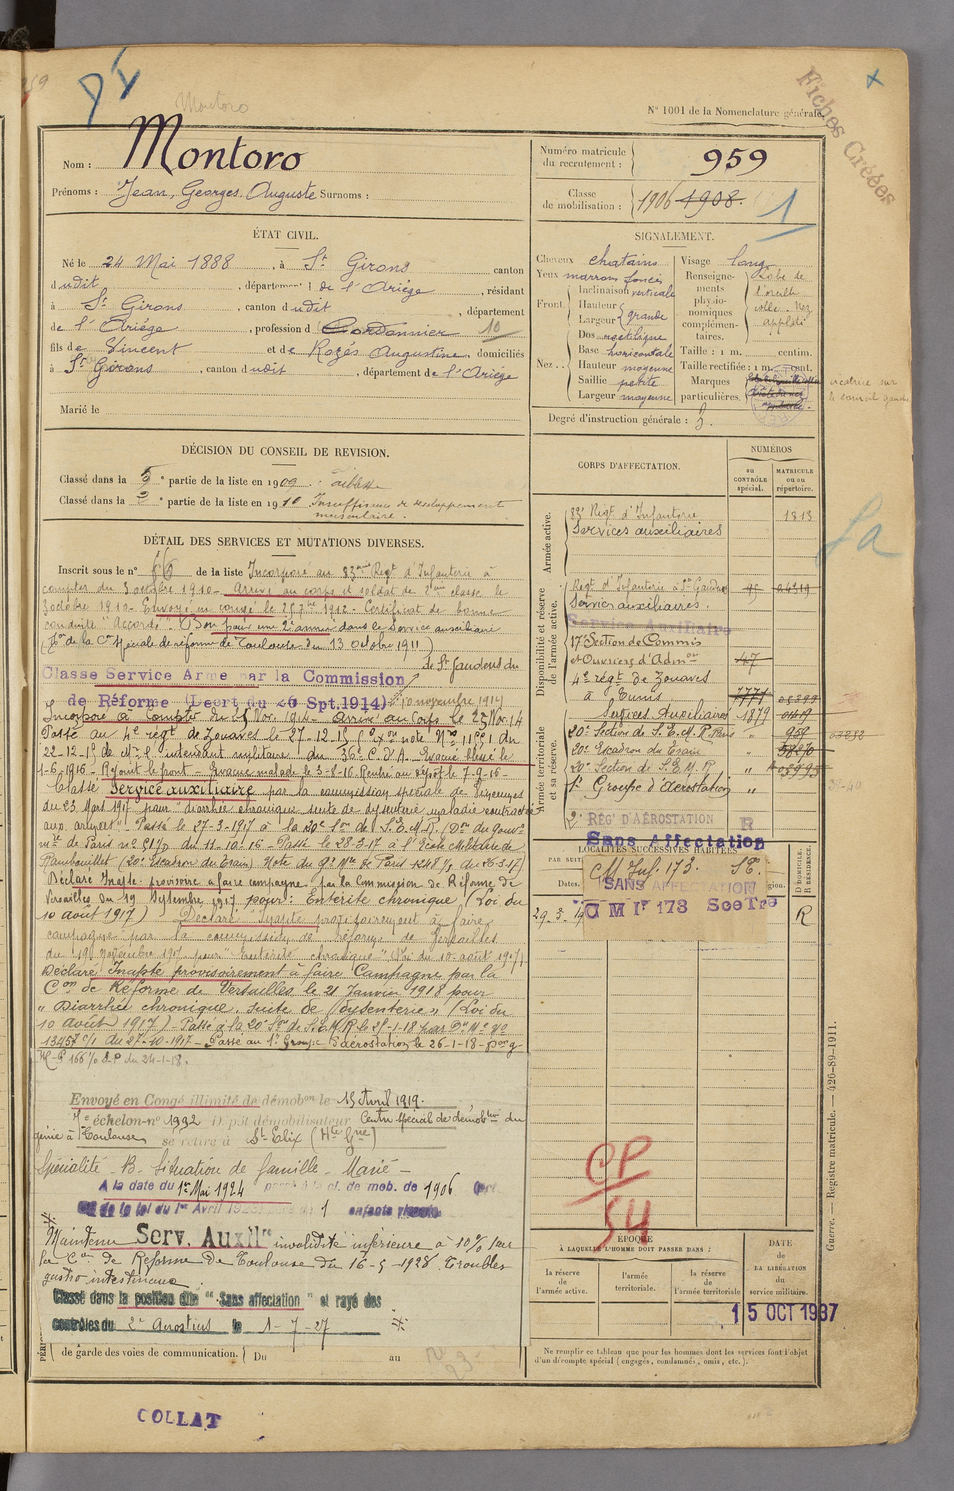 Montoro
N° 1001 de la Nomenclature générale.
Fiches Créées
Nom : Montoro
Prénoms : Jean, Georges, Auguste Surnoms :
Numéro matricule du recrutement : 959
Classe de mobilisation : 1906 1908.
1
ÉTAT CIVIL.
Né le 24 Mai 1888, à St Girons canton
dudit, département de l'Ariége, résidant
à St Girons, canton dudit, département
de l'Ariége, profession de Cordonnier 10
fils de Vincent et de Rozés Augustine, domiciliés
à St Girons, canton dudit, département de l'Ariége
Marié le
SIGNALEMENT.
Cheveux chatains
Yeux marrons foncés
Front Inclinaison verticale
Hauteur
Largeur grande
Nez Dos rectiligne
Base horizontale
Hauteur moyenne
Saillie petite
Largeur moyenne
Visage long
Renseignements physionomiques complémentaires. Lobe de l'oreille Nez applati
Taille : 1 m. centim.
Taille rectifiée : 1 m. cent.
Marques particulières. cicatrice sur le sourcil gauche
Degré d'instruction générale : 3.
DÉCISION DU CONSEIL DE REVISION.
Classé dans la 5e partie de la liste en 1909 faiblesse
Classé dans la 2e partie de la liste en 1910 Insuffisance de developpement
musculaire.
DÉTAIL DES SERVICES ET MUTATIONS DIVERSES.
Inscrit sous le n° 66 de la liste Incorporé au 83ème Régt d'Infanterie à
compter du 3 octobre 1910. Arrivé au corps et soldat de 2ème classe le
3 octobre 1910. Envoyé en congé le 25 7bre 1912. Certificat de bonne
conduite "Accordé". Bon pour une 2e année dans le Service auxiliaire
(Don de la Con Spéciale de réforme de Toulouse du 13 octobre 1911)
Classé Service Armé par la Commission de St Gaudens du
de Réforme (Décret du 26 Spt.1914) 10 novembre 1914
Incorporé à compter du 25 Nov. 1914. Arrivé au Corps le 25 Nov 14
Passé au 4e régt de Zouaves le 27-12-15
22-12-15 de Mr l'intendant militaire du 36e C. d'A. Evacué blessé le
1-6-1916. Rejoint le front. Evacué malade le 3-8-16 Rentré au dépôt le 7-9-16
Classé Service auxiliaire par la commission spéciale de
du 23 Mars 1917 pour "diarrhée chronique suite de dysenterie maladie contractée
aux armées". Passé le 27-3-1917 à la 20e Son de S.E.M.R. (Don du Gouvr
mre de Paris du 11-10-16 - Passé le 28-3-17 à l'Ecole Militaire de
Rambouillet (20e Escadron du Train) Note du Gt Mre de Paris 1248 du 26-3-17
Déclaré Inapte provisoire à faire campagne par la Commission de Réforme de
Versailles du 19 Septembre 1917 pour : Entérite chronique (Loi du
10 août 1917) Déclaré Inapte provisoirement à faire
campagne par la commission de réforme de Versailles
du 19 Novembre 1917 pour "Entérite chronique" (Loi du 10 août 1917)
Déclaré Inapte provisoirement à faire Campagne par la
Con de Réforme de Versailles le 21 Janvier 1918 pour
"Diarrhée chronique, suite de dysenterie" (Loi du
10 août 1917) - Passé à la 20e Son de S.E.M.R le 25-1-18 par Don Me No
13457 c/1 du 27-10-1917 - Passé au 1er Groupe d'aérostation le 26-1-18
du 24-1-18.
Envoyé en Congé illimité de démobon le 15 Avril 1919.
7e échelon n° 1992 Dépôt démobilisateur Centre spécial de démobon du
génie à Toulouse se retire à St Elix (Hte Gne)
Spécialité - B - Situation de famille - Marié -
A la date du 1er Mai 1924 passé à la cl. de mob. de 1906
de la loi du 1er Avril 1923 père de 1 enfants vivants
Maintenu Serv. Auxil re invalidité inférieure à 10% par
la Con de Réforme de Toulouse du 16-5-1928 Troubles
gastro intestinaux.
Classé dans la position dite "Sans affectation" et rayé des
contrôles du 2e Aérostiers le 1-7-27
de garde des voies de communication. Du au
COLLAT
CORPS D'AFFECTATION.
NUMÉROS
au CONTRÔLE spécial.
MATRICULE ou au répertoire.
Armée active.
83e Régt d'Infanterie 1813
Services auxiliaires
Disponibilité et réserve de l'armée active.
Régt d'Infanterie à St Gaudens
Services auxiliaires.
Service Auxiliaire
17e Section de Commis
et Ouvriers d'Admon
4e régt de Zouaves
à Tunis
Services Auxiliaires 1877
Armée territoriale et sa réserve.
20e Section de S.E.M.R Paris
20e Escadron du Train
20e Section de S.E.M.R.
1er Groupe d'Aérostation
2e RÉGt D'AÉROSTATION R
Sans Affectation
LOCALITÉS SUCCESSIVES HABITÉES
Dates.
D DOMICILE. R RÉSIDENCE.
C M Inf. 173. ST.
SANS AFFECTATION
C M Ir 173 SecTre
29.3.19
R
CP
54
ÉPOQUE
À LAQUELLE L'HOMME DOIT PASSER DANS :
la réserve de l'armée active.
l'armée territoriale.
la réserve de l'armée territoriale
DATE de LA LIBÉRATION du service militaire.
15 OCT 1937
Ne remplir ce tableau que pour les hommes dont les services font l'objet
d'un décompte spécial (engagés, condamnés, omis, etc.).
Guerre. — Registre matricule. — 426-89-1911.